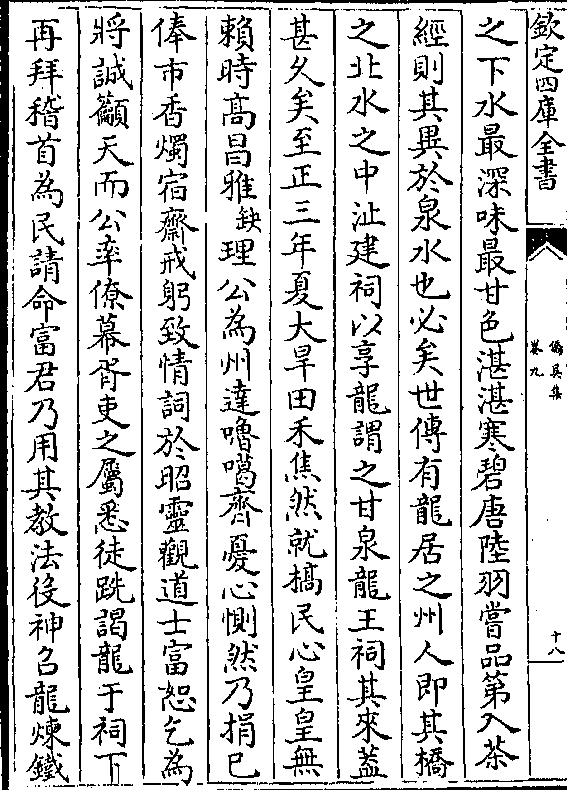 欽定四庫全書
僑吳集
卷九
十八
之下水最深味最甘色湛湛寒碧唐陸羽嘗品第入茶
經則其異於泉水也必矣世傳有龍居之州人即其橋
之北水之中沚建祠以享龍謂之甘泉龍王祠其來葢
甚久矣至正三年夏大旱田禾焦然就槁民心皇皇無
賴時髙昌雅缺理公為州達嚕噶齊憂心惻然乃捐已
俸市香燭宿齋戒躬致情詞於昭靈觀道士富恕乞為
將誠籲天而公率僚幕胥吏之屬悉徒跣謁龍于祠下
再拜稽首為民請命富君乃用其教法役神召龍煉鐵